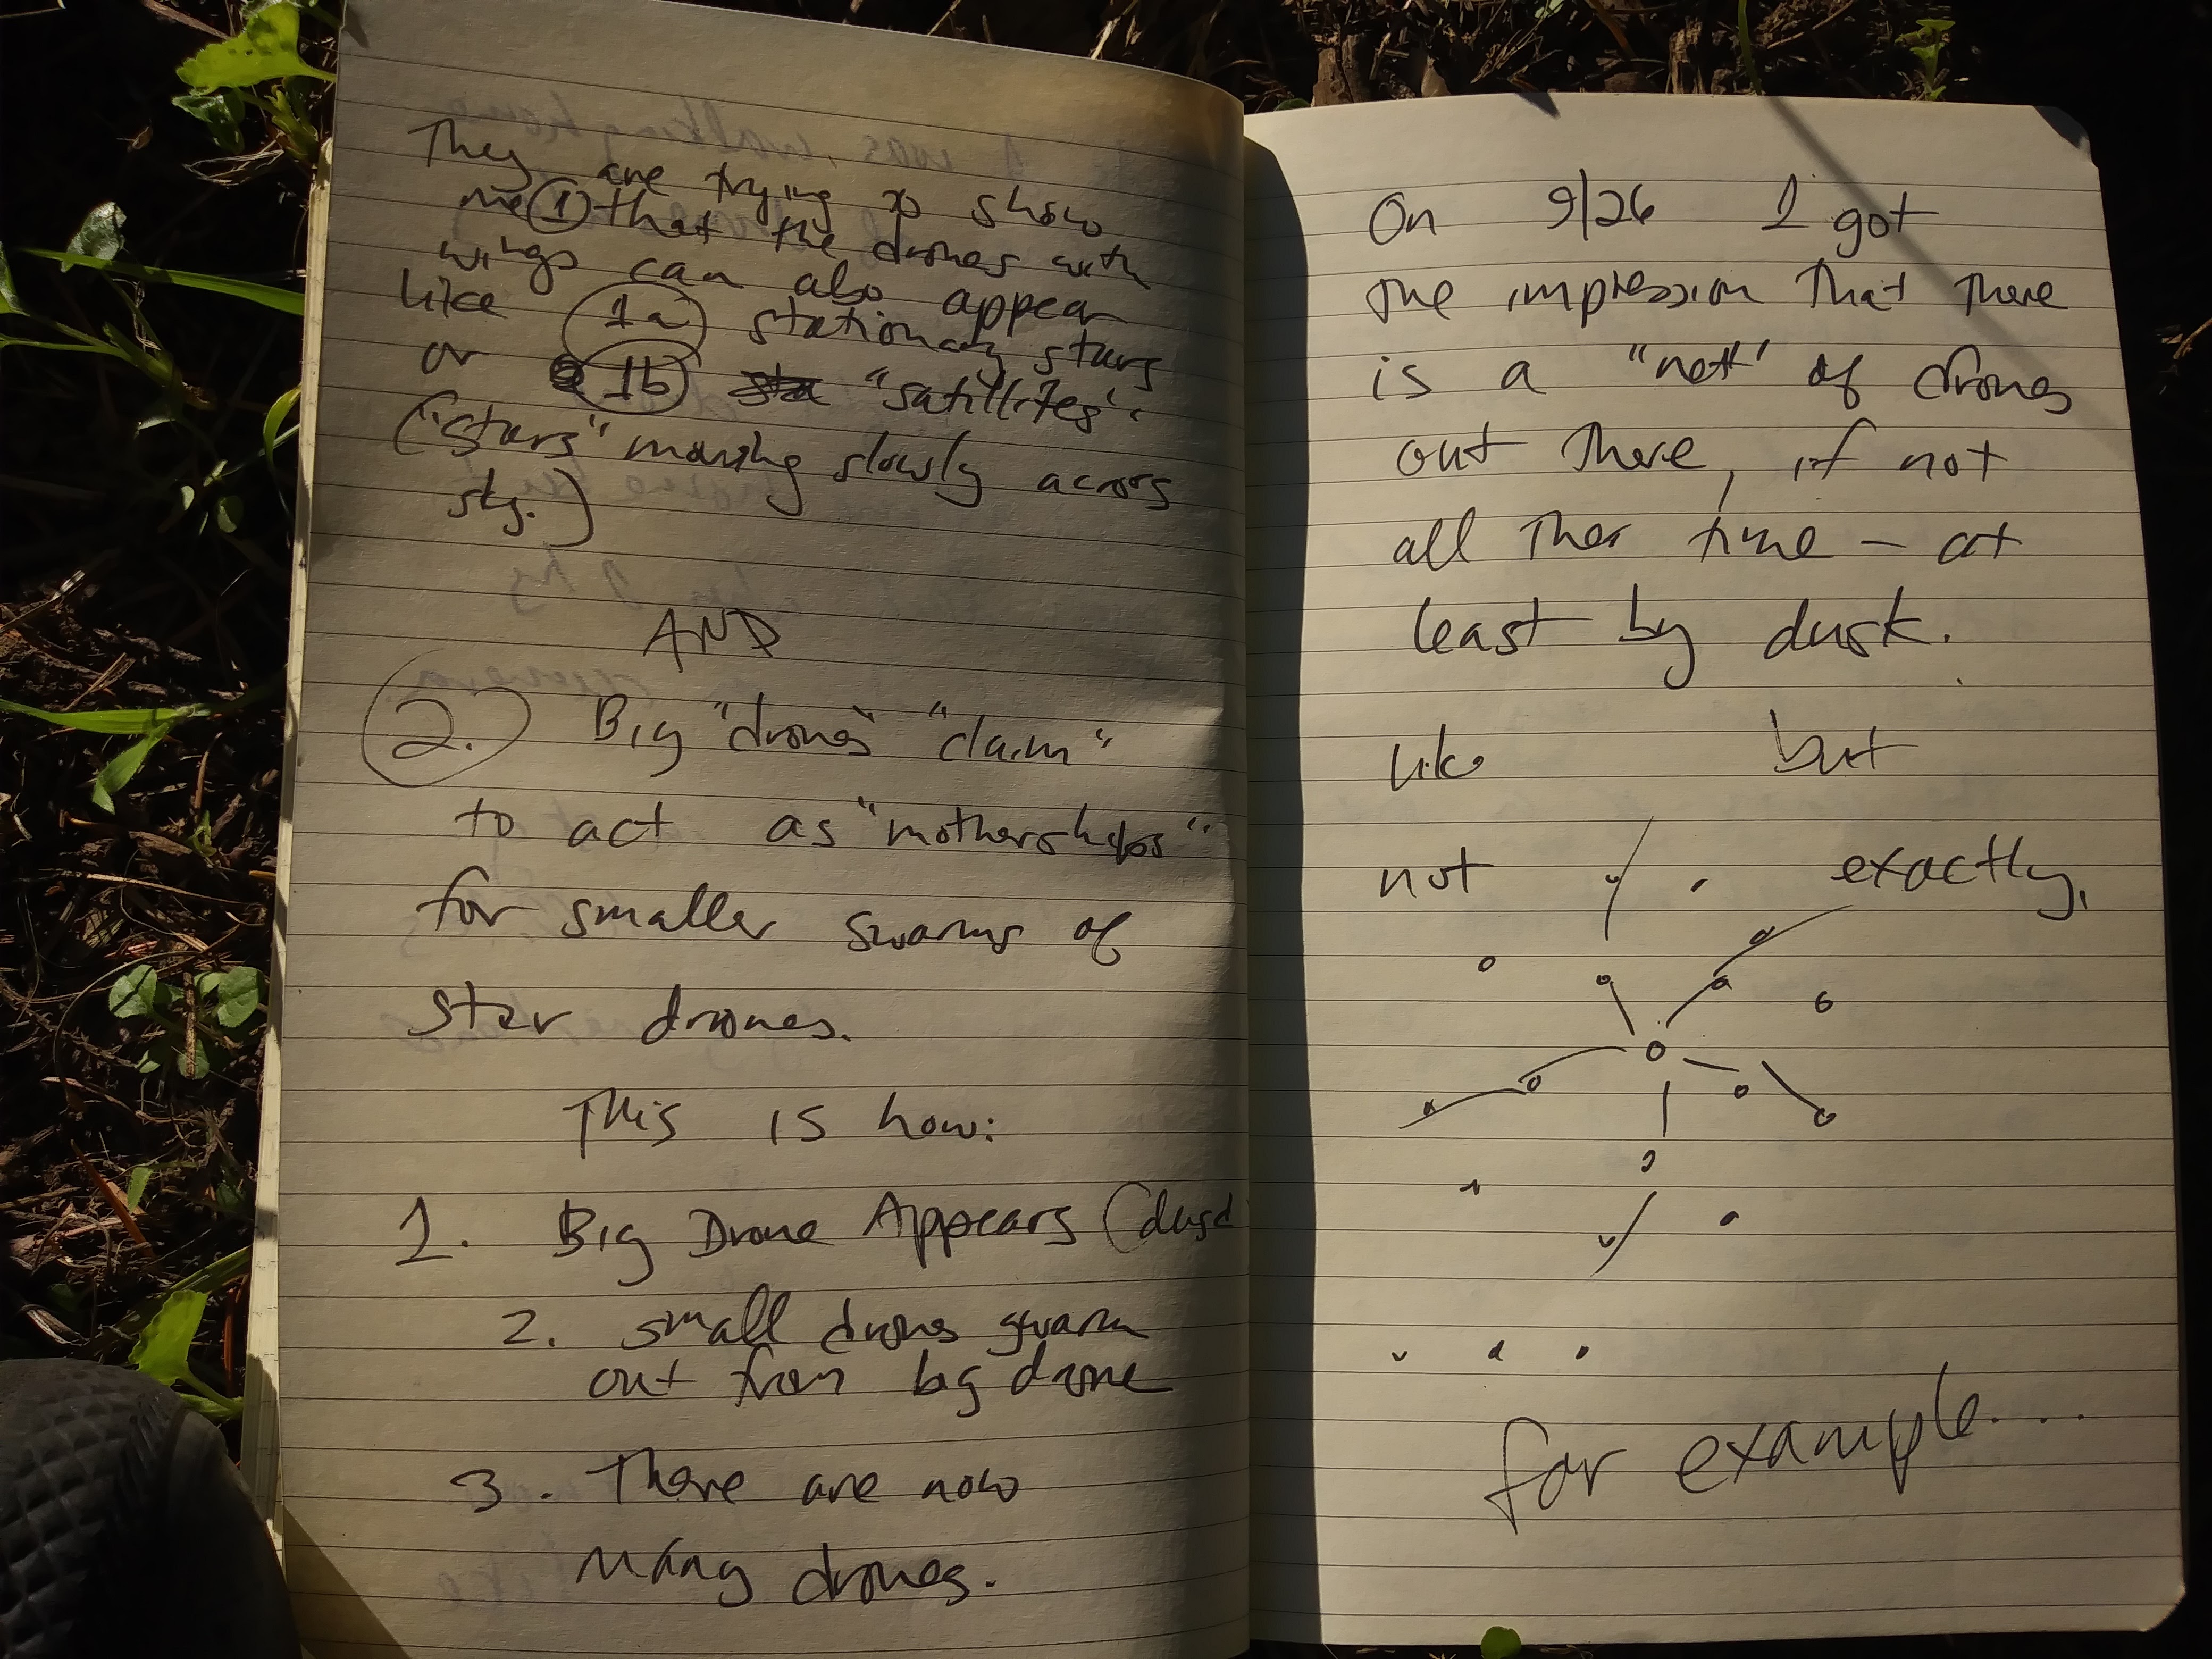 They are trying to show
me ① that the drones with
wings can also appear
like 1a stationary stars
or 1b "satillites"
("stars" moving slowly across
sky.)
AND
2. Big "drones" "claim"
to act as "motherships"
for smaller swarms of
star drones.
This is how:
1. Big Drone Appears (dusk
2. small drones swarm
out from big drone
3. There are now
many drones.
On 9/26 I got
the impression that there
is a "net" of drones
out there, if not
all the time - at
least by dusk.
like but
not exactly,
for example....